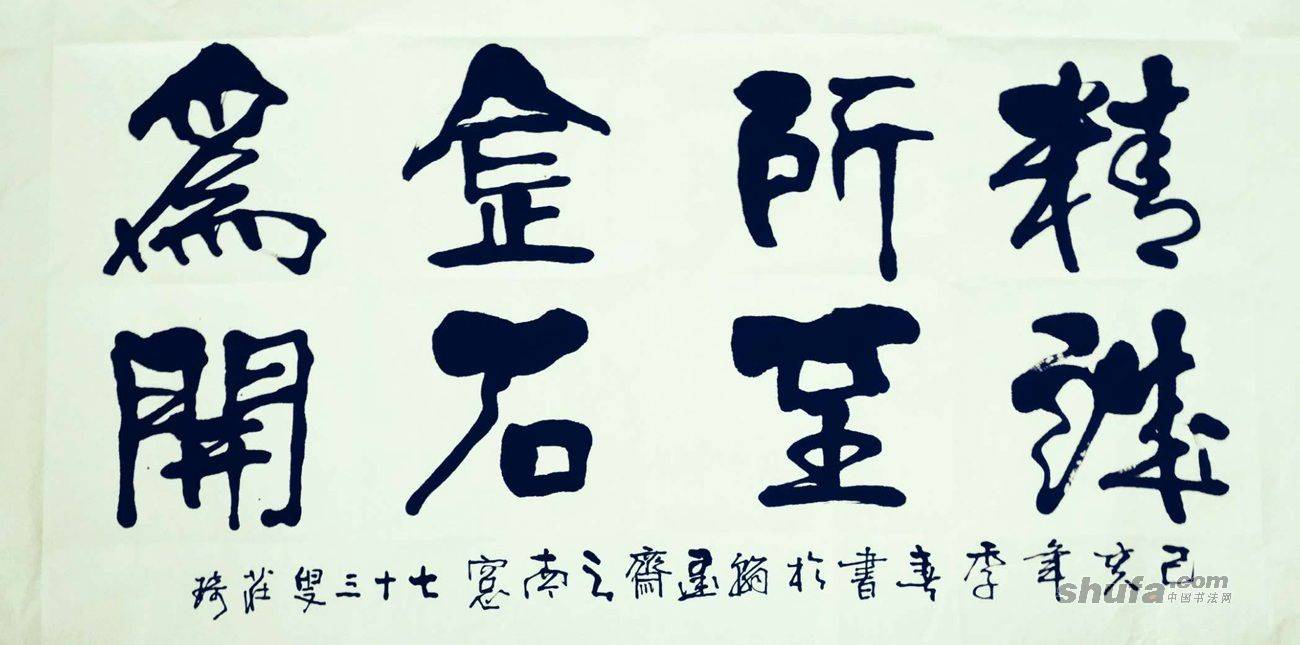 精誠
所至
金石
爲開
己亥年季春書於翰墨齋之南窻七十三叟莊琦
shufa.com
中国书法网